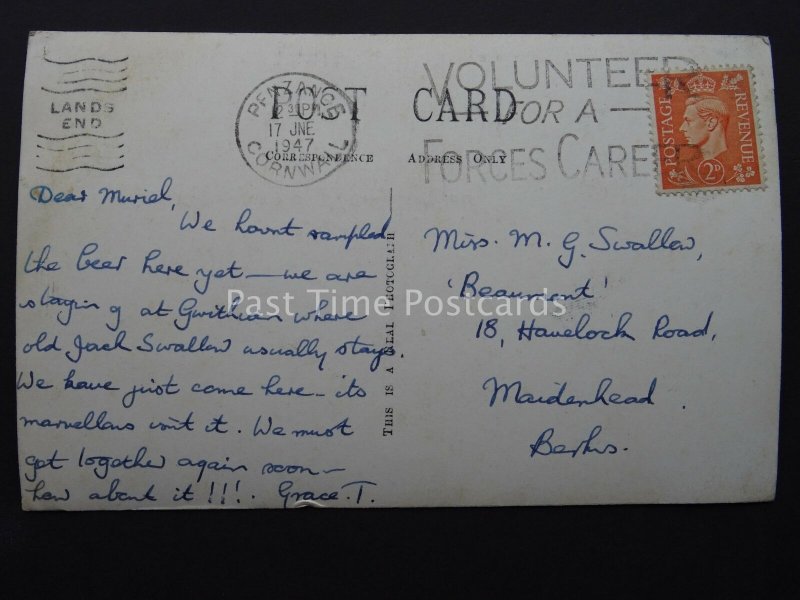 LANDS
END
PENZANCE
2 30 PM
17 JNE
1947
CORNWALL
VOLUNTEER
FOR A
FORCES CAREER
POSTAGE
REVENUE
2D
POST CARD
CORRESPONDENCE
ADDRESS ONLY
THIS IS A REAL PHOTOGRAPH
Dear Muriel,
We havnt sampled
the beer here yet – we are
staying at Gwithian where
old Jack Swallow usually stays.
We have just come here – its
marvellous isnt it. We must
get together again soon –
how about it !!!. Grace.T.
Miss. M. G. Swallow,
'Beaumont'
18, Havelock Road,
Maidenhead.
Berks.
Past Time Postcards